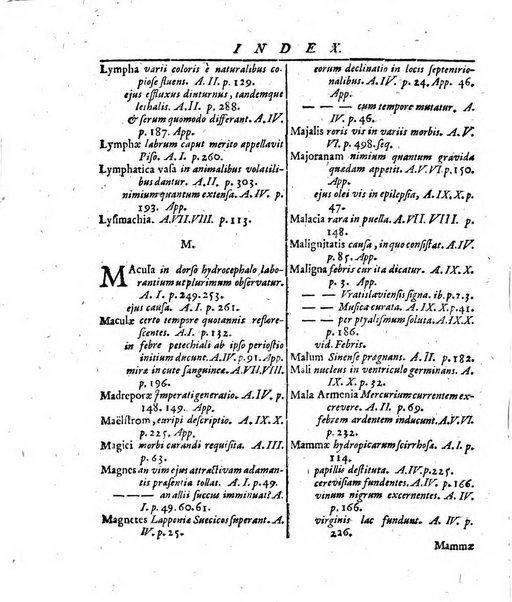 INDEX.
Lympha varii coloris è naturalibus co-
piose fluens. A. II. p. 129.
ejus effluxus diuturnus, tandemque
lethalis. A. II. p. 288.
& serum quomodo differant. A. IV.
p. 187. App.
Lymphæ labrum caput merito appellavit
Piso. A. I. p. 260.
Lymphatica vasa in animalibus volatili-
bus dantur. A. II. p. 303.
nimium quantum extensa. A. IV. p.
193. App.
Lysimachia. A. VII. VIII. p. 113.
M.
MAcula in dorso hydrocephalo labo-
rantium ut plurimum observatur.
A. I. p. 249. 253.
ejus causa. A. I. p. 261.
Maculæ certo tempore quotannis reflore-
scentes. A. I. p. 132.
in febre petechiali ab ipso periostio
initium ducunt. A. IV. p. 91. App.
miræ in cute sanguineæ. A. VII. VIII.
p. 196.
Madreporæ Imperati generatio. A. IV. p.
148. 149. App.
Maëlström, euripi descriptio. A. IX. X.
p. 225. App.
Magici morbi curandi requisita. A. III.
p. 63.
Magnes an vim ejus attractivam adaman-
tis præsentia tollat. A. I. p. 49.
— — — an allii succus imminuat? A.
I. p. 49. 60. 61.
Magnetes Lapponiæ Suecicos superant. A.
IV. p. 25.
eorum declinatio in locis septentrio-
nalibus. A. IV. p. 24. App. 46.
App.
— — — cum tempore mutatur. A.
IV. p. 46.
Majalis roris vis in variis morbis. A. V.
VI. p. 498. seq.
Majoranam nimium quantum gravida
quædam appetis. A. V. VI. p. 150.
App.
ejus olei vis in epilepsia, A. IX. X. p.
47.
Malacia rara in puella. A. VII. VIII. p.
148.
Malignitatis causa, in quo consistat. A. IV.
p. 85. App.
Maligna febris cur ita dicatur. A. IX. X.
p. 3. App.
— — Vratislaviensis signa. ib. p. 2. 3.
— — Musica curata. A. IX. X. p. 41.
— — per ptyalismum soluta. A. IX. X.
p. 186.
vid. Febris.
Malum Sinense prægnans. A. II. p. 182.
Mali nucleus in ventriculo germinans. A.
IX. X. p. 32.
Mala Armenia Mercurium currentem ex-
crevere. A. II. p. 69.
febrem ardentem inducunt. A. V. VI.
p. 232.
Mammæ hydropicarum scirrhosa. A. I. p.
114.
papillis destituta. A. IV. p. 225.
cerevisiam fundentes. A. IV. p. 166.
vinum nigrum excernentes. A. IV.
p. 166.
virginis lac fundunt. A. IV. p.
226.
Mammæ